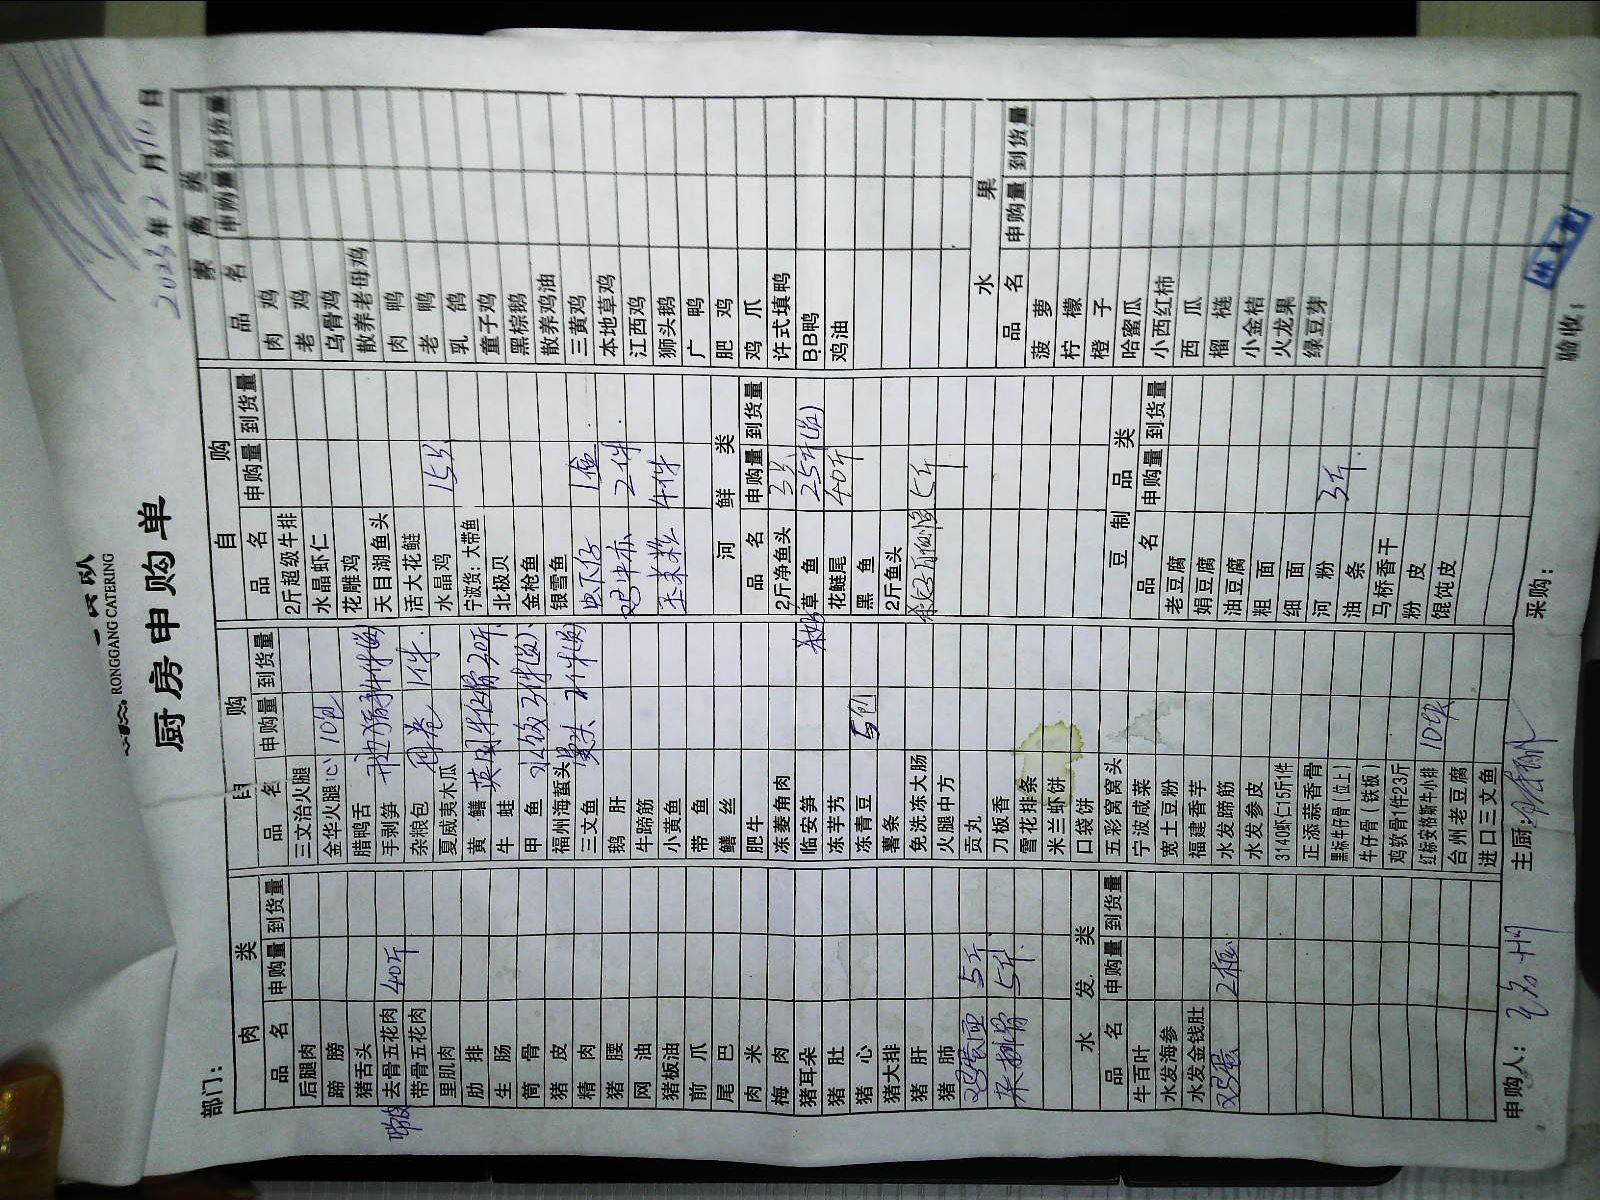 RONGGANG CATERING
厨房申购单
部门：
2023年2月10日
肉类
品名 申购量 到货量
后腿肉
蹄膀
猪舌头
去骨五花肉 40斤
带骨五花肉
里肌肉
肋排
生肠
筒骨
猪皮
精肉
猪腰
网油
猪板油
前爪
尾巴
肉米
梅肉
猪耳朵
猪肚
猪心
猪大排
猪肝
猪肺
5斤
5斤
水发类
品名 申购量 到货量
牛百叶
水发海参
水发金钱肚
鸡蛋 2框
自购
品名 申购量 到货量
三文治火腿
金华火腿心 10包
腊鸭舌
手剥笋
杂粮包 1件
夏威夷木瓜
黄鳝
牛蛙
甲鱼
福州海蜇头
三文鱼
鹅肝
牛蹄筋
小黄鱼
带鱼
鳝丝
肥牛
冻菱角肉
临安笋
冻芋艿
冻青豆 5包
薯条
免洗冻大肠
火腿中方
贡丸
刀板香
雪花排条
米兰虾饼
口袋饼
五彩窝窝头
宁波咸菜
宽土豆粉
福建香芋
水发蹄筋
水发参皮
3140虾仁15斤1件
正添蒜香骨
黑标牛仔骨（位上）
牛仔骨（铁板）
鸡软骨1件23斤
红标安格斯牛小排 10块
台州老豆腐
进口三文鱼
自购
品名 申购量 到货量
2斤超级牛排
水晶虾仁
花雕鸡
天目湖鱼头
活大花鲢
水晶鸡 15只
宁波货：大带鱼
北极贝
金枪鱼
银雪鱼
虾仔 1盒
2件
玉米粒 4件
河鲜类
品名 申购量 到货量
2斤净鱼头 3只
草鱼 25斤
花鲢尾 40斤
黑鱼
2斤鱼头
5斤
豆制品类
品名 申购量 到货量
老豆腐
娟豆腐
油豆腐
粗面
细面
河粉 3斤
油条
马桥香干
粉皮
馄饨皮
家禽类
品名 申购量 到货量
肉鸡
老鸡
乌骨鸡
散养老母鸡
肉鸭
老鸭
乳鸽
童子鸡
黑棕鹅
散养鸡油
三黄鸡
本地草鸡
江西鸡
狮头鹅
广鸭
肥鸡
鸡爪
许式填鸭
BB鸭
鸡油
水果
品名 申购量 到货量
菠萝
柠檬
橙子
哈蜜瓜
小西红柿
西瓜
榴梿
小金桔
火龙果
绿豆芽
申购人：
主厨：
采购：
验收：